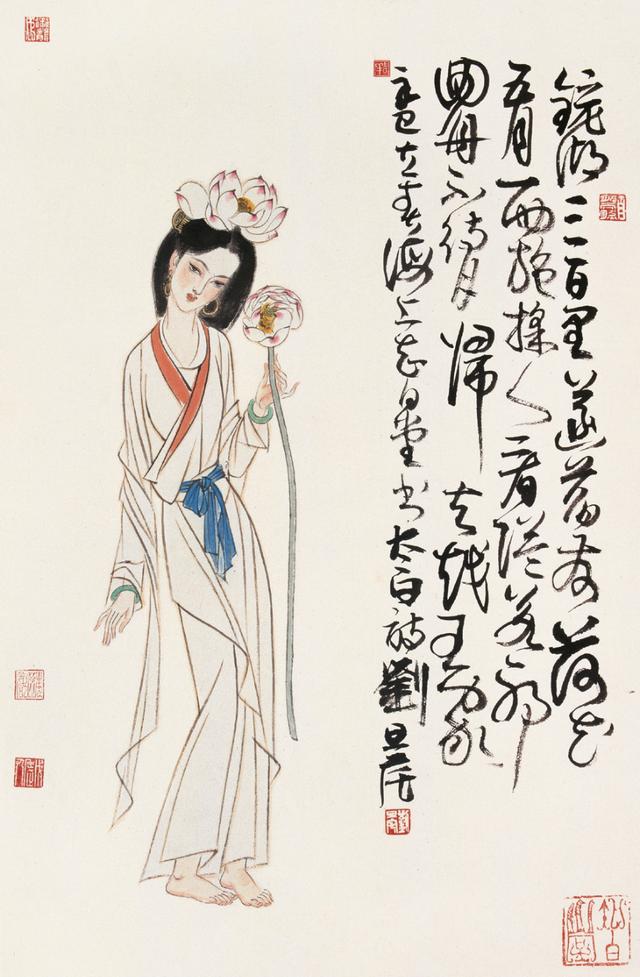 鏡湖三百里菡萏發荷花
五月西施採人看隘若耶
回舟不待月歸去越王家
辛巳立春海上白堂書太白詩劉旦宅